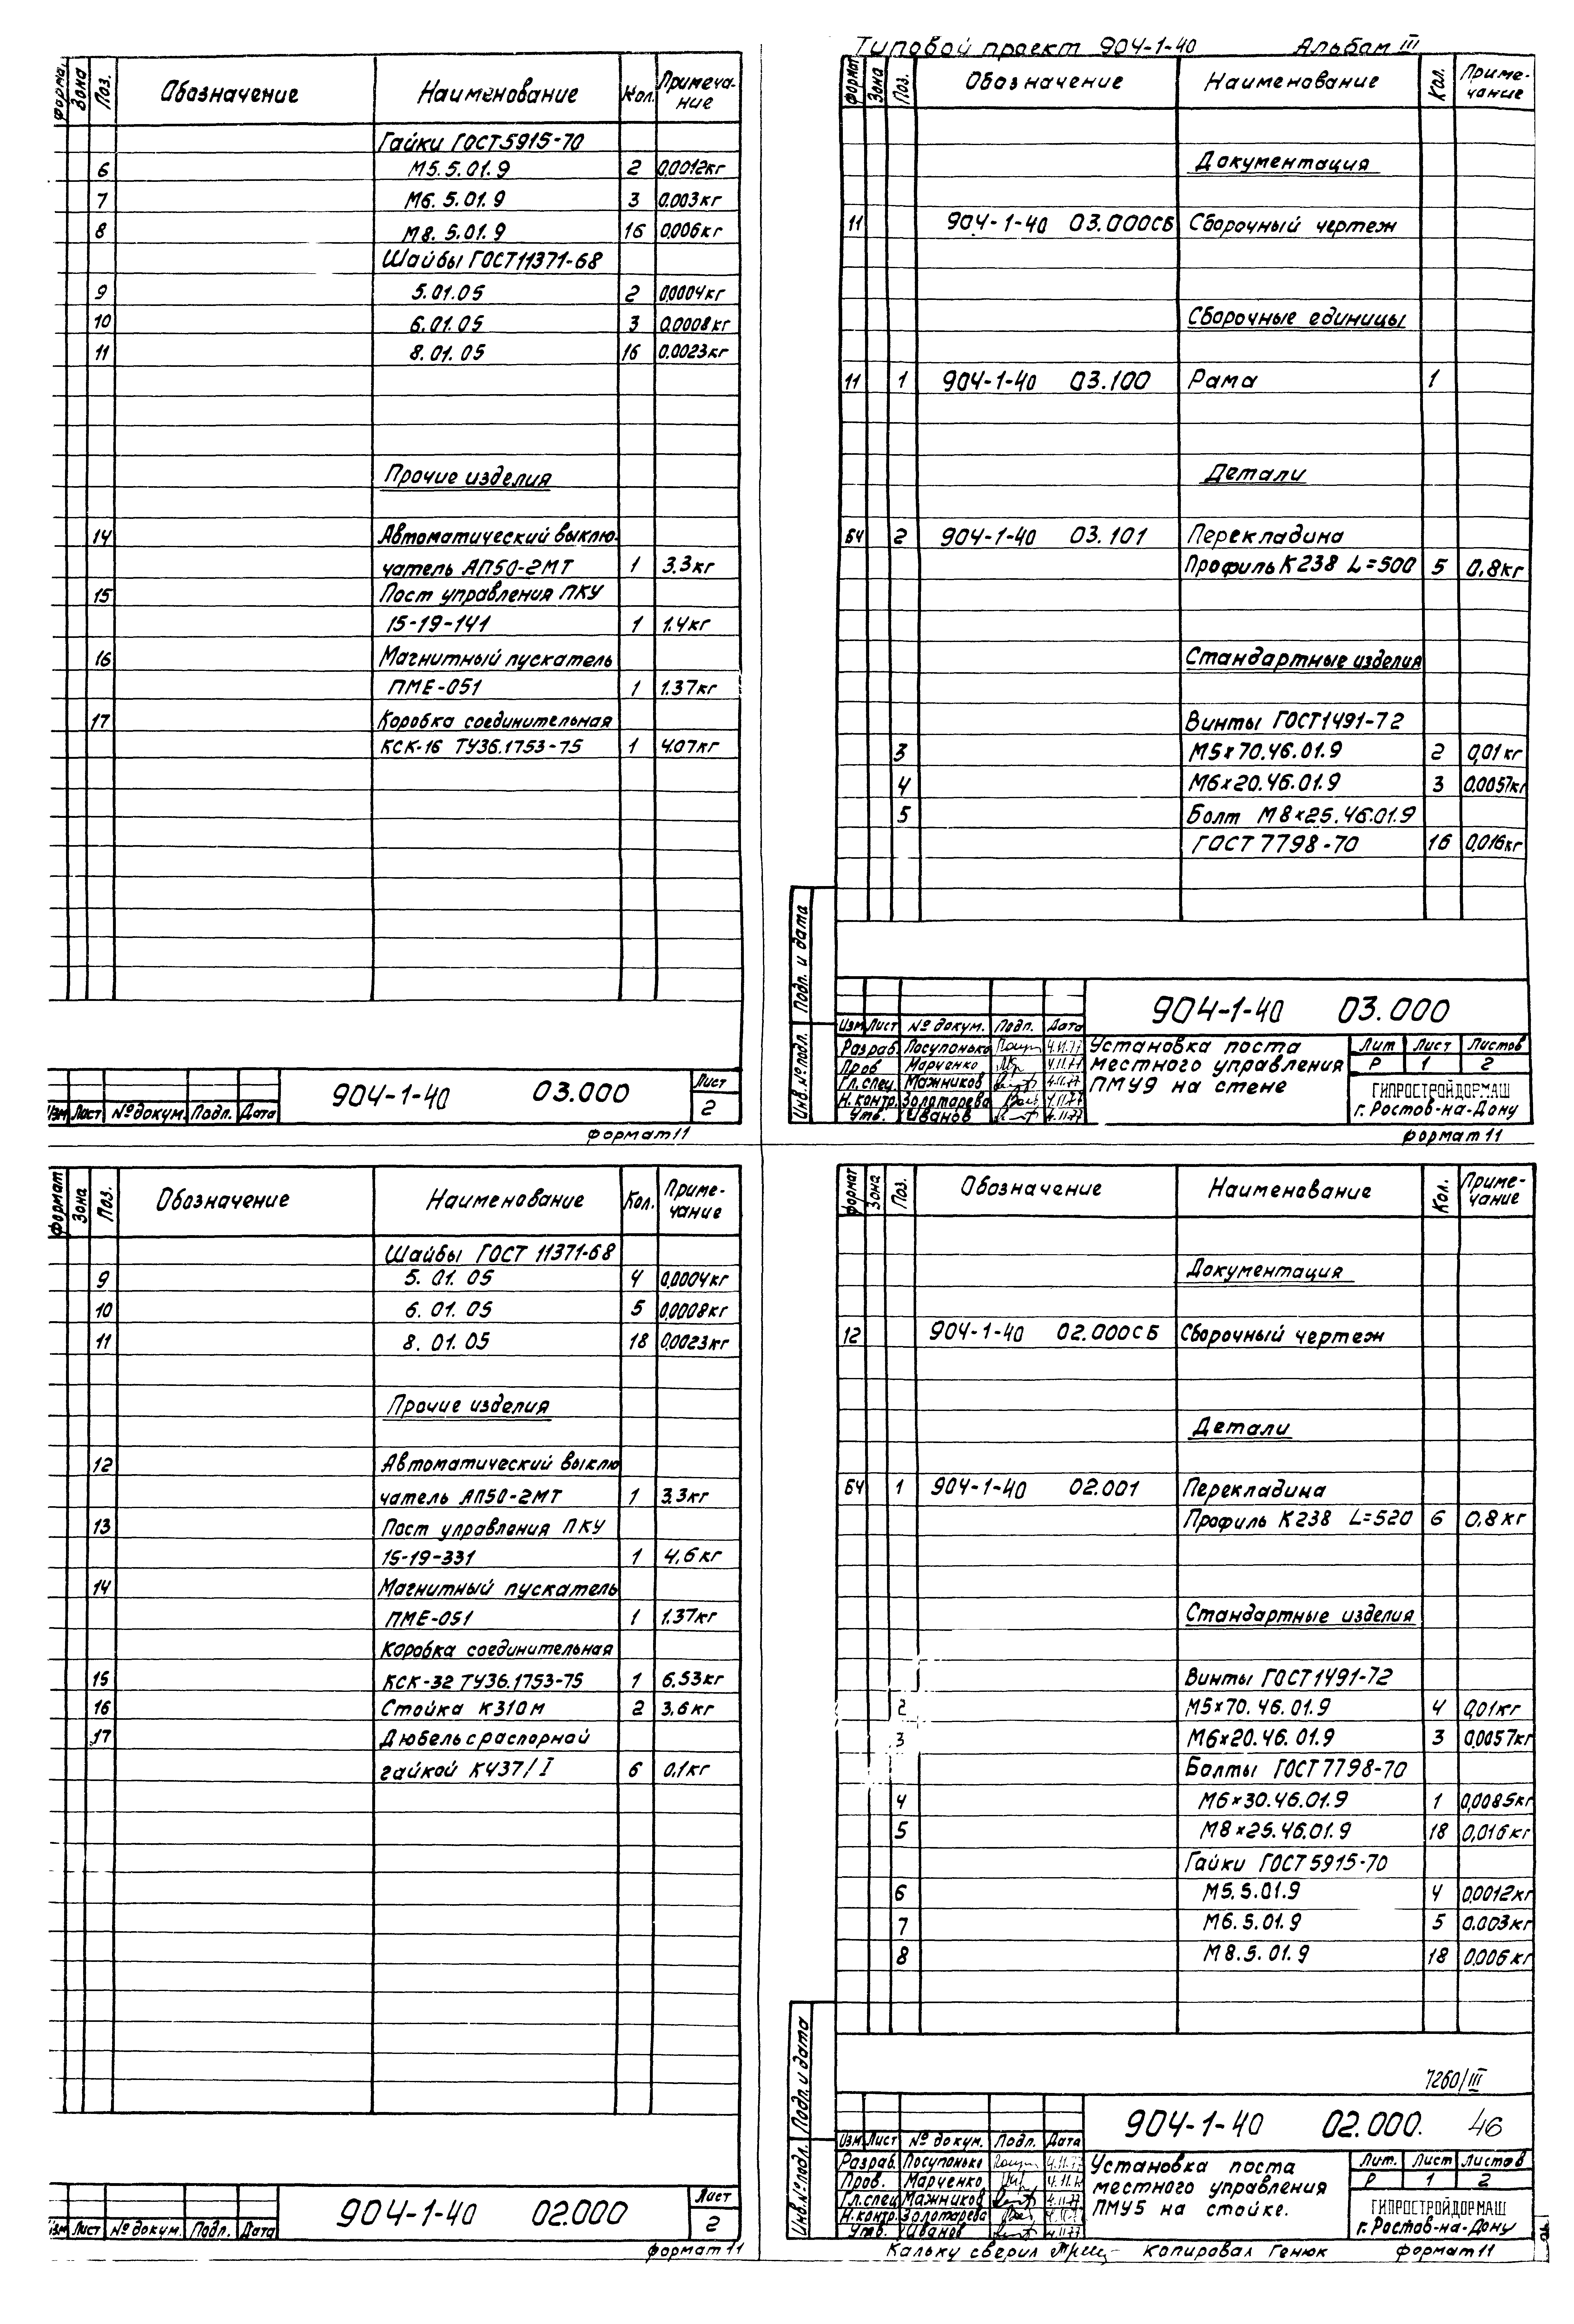 Типовой проект 904-1-40 Альбом III
Формат Зона Поз. Обозначение Наименование Кол. Примеча-
ние
Гайки ГОСТ 5915-70
6 М5.5.01.9 2 0,0012кг
7 М6.5.01.9 3 0.003кг
8 М8.5.01.9 16 0,006кг
Шайбы ГОСТ 11371-68
9 5.01.05 2 0,0004кг
10 6.01.05 3 0.0008кг
11 8.01.05 16 0.0023кг
Прочие изделия
14 Автоматический выклю-
чатель АП50-2МТ 1 3.3кг
15 Пост управления ПКУ
15-19-141 1 1.4кг
16 Магнитный пускатель
ПМЕ-051 1 1.37кг
17 Коробка соединительная
КСК-16 ТУ36.1753-75 1 4.07кг
Изм Лист № докум. Подп. Дата
904-1-40 03.000
Лист
2
Формат 11
Формат Зона Поз. Обозначение Наименование Кол. Приме-
чание
Документация
11 904-1-40 03.000СБ Сборочный чертеж
Сборочные единицы
11 1 904-1-40 03.100 Рама 1
Детали
БЧ 2 904-1-40 03.101 Перекладина
Профиль К238 L=500 5 0,8кг
Стандартные изделия
Винты ГОСТ 1491-72
3 М5×70.46.01.9 2 0,01кг
4 М6×20.46.01.9 3 0.0057кг
5 Болт М8×25.46.01.9
ГОСТ 7798-70 16 0,016кг
Инв. № подл. Подп. и дата
904-1-40 03.000
Изм Лист № докум. Подп. Дата
Разраб. Посупонько 4.11.77
Пров Марченко 4.11.77
Гл.спец. Мажников 4.11.77
Н.контр. Золотарева 4.11.77
Утв. Иванов 4.11.77
Установка поста
местного управления
ПМУ9 на стене
Лит Лист Листов
Р 1 2
ГИПРОСТРОЙДОРМАШ
г. Ростов-на-Дону
Формат 11
Формат Зона Поз. Обозначение Наименование Кол. Приме-
чание
Шайбы ГОСТ 11371-68
9 5.01.05 4 0,0004кг
10 6.01.05 5 0,0008кг
11 8.01.05 18 0,0023кг
Прочие изделия
12 Автоматический выклю
чатель АП50-2МТ 1 3.3кг
13 Пост управления ПКУ
15-19-331 1 4,6кг
14 Магнитный пускатель
ПМЕ-051 1 1.37кг
Коробка соединительная
15 КСК-32 ТУ36.1753-75 1 6.53кг
16 Стойка К310М 2 3,6кг
17 Дюбель с распорной
гайкой К437/I 6 0.1кг
Изм Лист № докум. Подп. Дата
904-1-40 02.000
Лист
2
Формат 11
Формат Зона Поз. Обозначение Наименование Кол. Приме-
чание
Документация
12 904-1-40 02.000СБ Сборочный чертеж
Детали
БЧ 1 904-1-40 02.001 Перекладина
Профиль К238 L=520 6 0,8кг
Стандартные изделия
Винты ГОСТ 1491-72
2 М5×70.46.01.9 4 0,01кг
3 М6×20.46.01.9 3 0,0057кг
Болты ГОСТ 7798-70
4 М6×30.46.01.9 1 0,0085кг
5 М8×25.46.01.9 18 0,016кг
Гайки ГОСТ 5915-70
6 М5.5.01.9 4 0.0012кг
7 М6.5.01.9 5 0.003кг
8 М8.5.01.9 18 0,006кг
7260/III
Инв.№ подл. Подп. и дата
904-1-40 02.000. 46
Изм Лист № докум. Подп. Дата
Разраб. Посупонько 4.11.77
Пров. Марченко 4.11.77
Гл.спец Мажников 4.11.77
Н.контр. Золотарева 4.11.77
Утв. Иванов 4.11.77
Установка поста
местного управления
ПМУ5 на стойке.
Лит. Лист Листов
Р 1 2
ГИПРОСТРОЙДОРМАШ
г. Ростов-на-Дону
Кальку сверил Копировал Генюк Формат 11